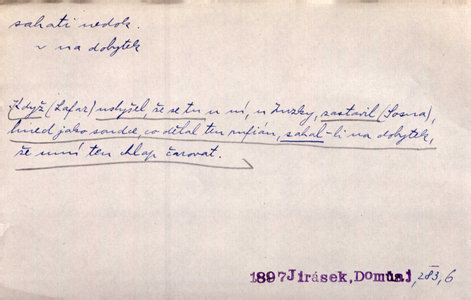 sahati nedok.
~ na dobytek
Když (Lafar) uslyšel, že se tu u ní, u Zuzky, zastavil (Sosna),
hned jako soudce, co dělal ten rufian, sahal-li na dobytek,
že umí ten chlap čarovat.
1897 Jirásek, Domů 1, 283, 6